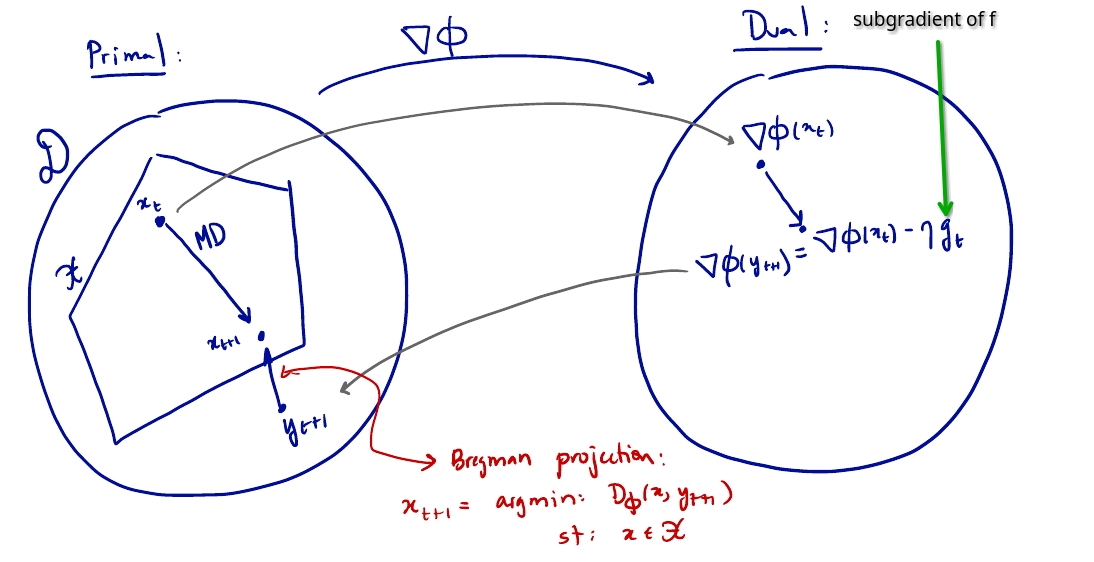 Primal:
∇ϕ
Dual:
subgradient of f
D
∇ϕ(x_t)
x_t
MD
∇ϕ(x_t) - η g_t
∇ϕ(y_{t+1}) =
X
x_{t+1}
y_{t+1}
Bregman projection:
x_{t+1} = argmin: D_ϕ(x, y_{t+1})
st: x ∈ X